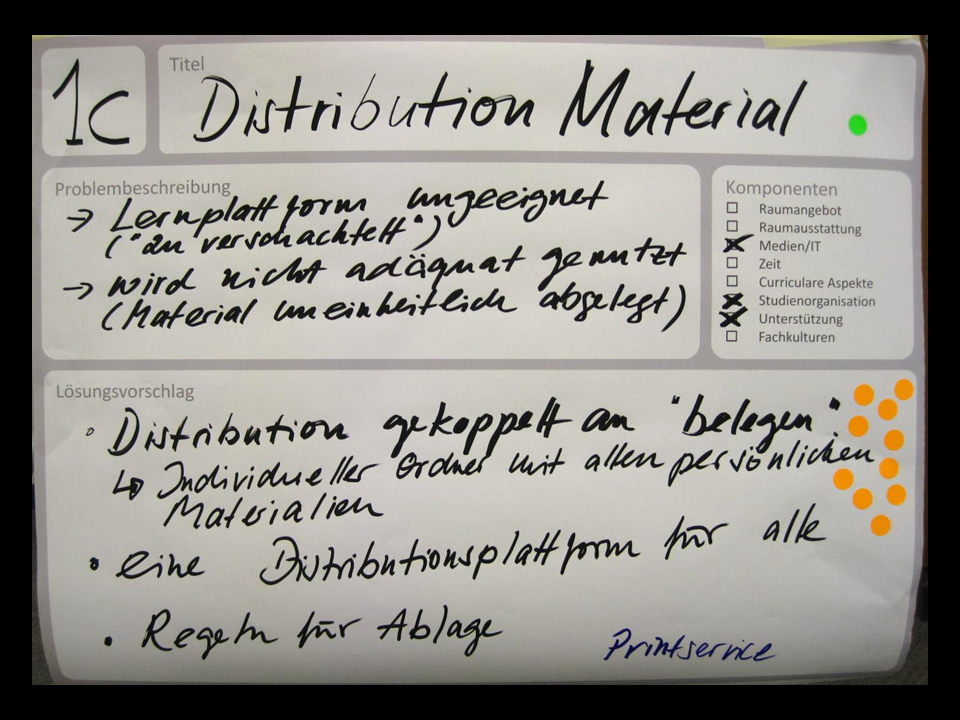 1c
Titel
Distribution Material
Problembeschreibung
→ Lernplattform ungeeignet
("zu verschachtelt")
→ wird nicht adäquat genutzt
(Material uneinheitlich abgelegt)
Komponenten
Raumangebot
Raumausstattung
Medien/IT
Zeit
Curriculare Aspekte
Studienorganisation
Unterstützung
Fachkulturen
Lösungsvorschlag
• Distribution gekoppelt an "belegen".
↳ Individueller Ordner mit allen persönlichen
Materialien
• eine Distributionsplattform für alle
• Regeln für Ablage
Printservice